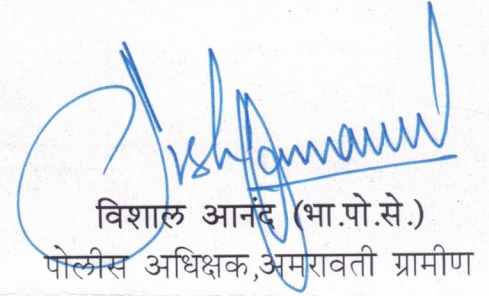 विशाल आनंद (भा.पो.से.)
पोलीस अधिक्षक,अमरावती ग्रामीण